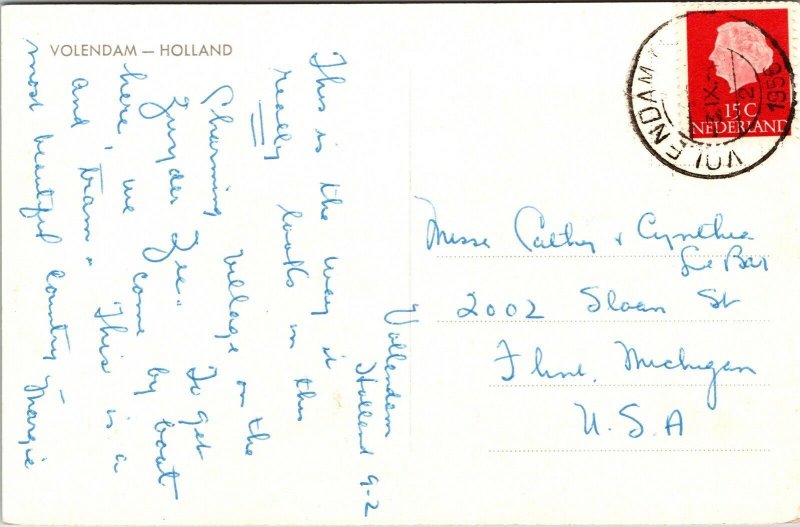 VOLENDAM — HOLLAND
Vollendam
Holland 9-2
This is the way it
really looks in this
Charming village on the
Zuyder Zee. To get
here, we come by boat
and tram. This is a
most beautiful country – Margie
VOLENDAM
3 IX
12
1956
15C
NEDERLAND
Cathy & Cynthia
Le Bar
2002 Sloan St
Flint, Michigan
U.S.A